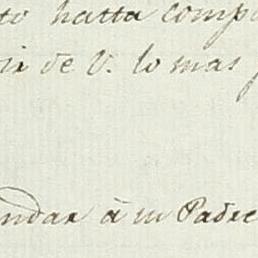 to hatta comp
ir de V. lo mas
ndar à su Padre